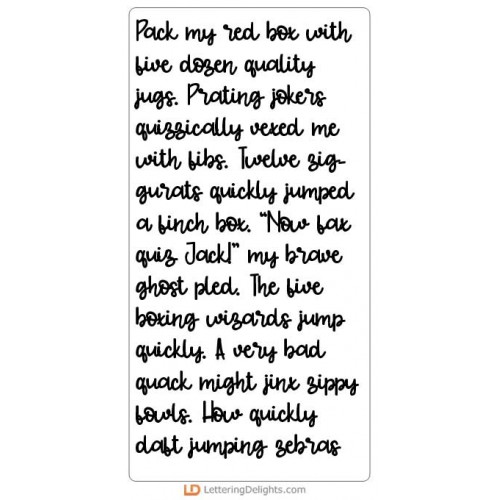 Pack my red box with
five dozen quality
jugs. Prating jokers
quizzically vexed me
with fibs. Twelve zig-
gurats quickly jumped
a finch box. "Now fax
quiz Jack!" my brave
ghost pled. The five
boxing wizards jump
quickly. A very bad
quack might jinx zippy
fowls. How quickly
daft jumping zebras
LD LetteringDelights.com